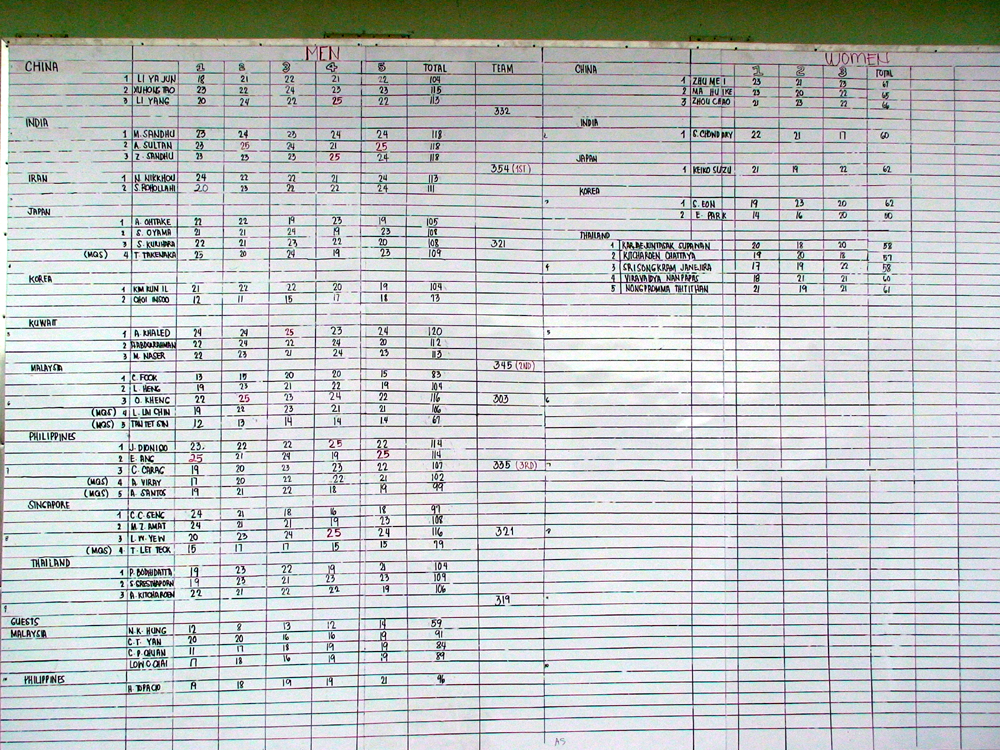 MEN
CHINA 1 2 3 4 5 TOTAL TEAM
1 LI YA JUN 18 21 22 21 22 104
2 XU HONG TAO 23 22 24 23 23 115
3 LI YANG 20 24 22 25 22 113
332
INDIA
1 M. SANDHU 23 24 23 24 24 118
2 A. SULTAN 23 25 24 21 25 118
3 Z. SANDHU 23 23 23 25 24 118
354 (1ST)
IRAN
1 N. NIKKHOU 24 22 22 21 24 113
2 S. ROHOLLAHI 20 23 22 22 24 111
JAPAN
1 A. OHTAKE 22 22 19 23 19 105
2 S. OYAMA 21 21 24 19 23 108
3 S. KURIHARA 22 21 23 22 20 108 321
(MQS) 4 T. TAKENAKA 23 20 24 19 23 109
KOREA
1 KIM KUN IL 21 22 22 20 19 104
2 CHOI INSOO 12 11 15 17 18 73
KUWAIT
1 A. KHALED 24 24 25 23 24 120
2 22 24 22 24 20 112
3 M. NASER 22 23 21 24 23 113
345 (2ND)
MALAYSIA
1 C. FOOK 13 15 20 20 15 83
2 L. HENG 19 23 21 22 19 104
3 O. KHENG 22 25 23 24 22 116 303
(MQS) 4 L. LIM CHIN 19 22 23 21 21 106
(MQS) 5 TAN TET SIN 12 13 14 14 14 67
PHILIPPINES
1 J. DIONIDO 23 22 22 25 22 114
2 E. ANG 25 21 24 19 25 114
3 C. CARAG 19 20 23 23 22 107 335 (3RD)
(MQS) 4 A. VIRAY 17 20 22 22 21 102
(MQS) 5 A. SANTOS 19 21 22 18 19 99
SINGAPORE
1 C.C. SENG 24 21 18 16 18 97
2 M.Z. AMAT 24 21 21 19 23 108
3 L.W. YEW 20 23 24 25 24 116 321
(MQS) 4 T. LET TECK 15 17 17 15 15 79
THAILAND
1 P. BODHIDATTA 19 23 22 19 21 104
2 S. SRESTHAPORN 19 23 21 23 23 109
3 A. KITCHAROEN 22 21 22 22 19 106
319
GUESTS
MALAYSIA
N.K. HUNG 12 8 13 12 14 59
C.T. YAN 20 20 16 16 19 91
C.P. QUAN 11 17 18 19 19 84
LOW C CHAI 17 18 16 19 19 89
PHILIPPINES
R. TOPACIO 19 18 19 19 21 96
WOMEN
CHINA 1 2 3 TOTAL
1 ZHU MEI 23 21 23 67
2 MA HUIKE 23 20 22 65
3 ZHOU CHAO 21 23 22 66
INDIA
1 S. CHOWDARY 22 21 17 60
JAPAN
1 KEIKO SUZU 21 19 22 62
KOREA
1 S. EON 19 23 20 62
2 E. PARK 14 16 20 50
THAILAND
1 SUPANAN 20 18 20 58
2 KITCHAROEN CHATTAYA 19 20 18 57
3 SRISONGKRAM JANEJIRA 17 19 22 58
4 VIRAVAIDYA NANPAPAS 18 21 21 60
5 NONGPROMMA THITITHAN 21 19 21 61
AS